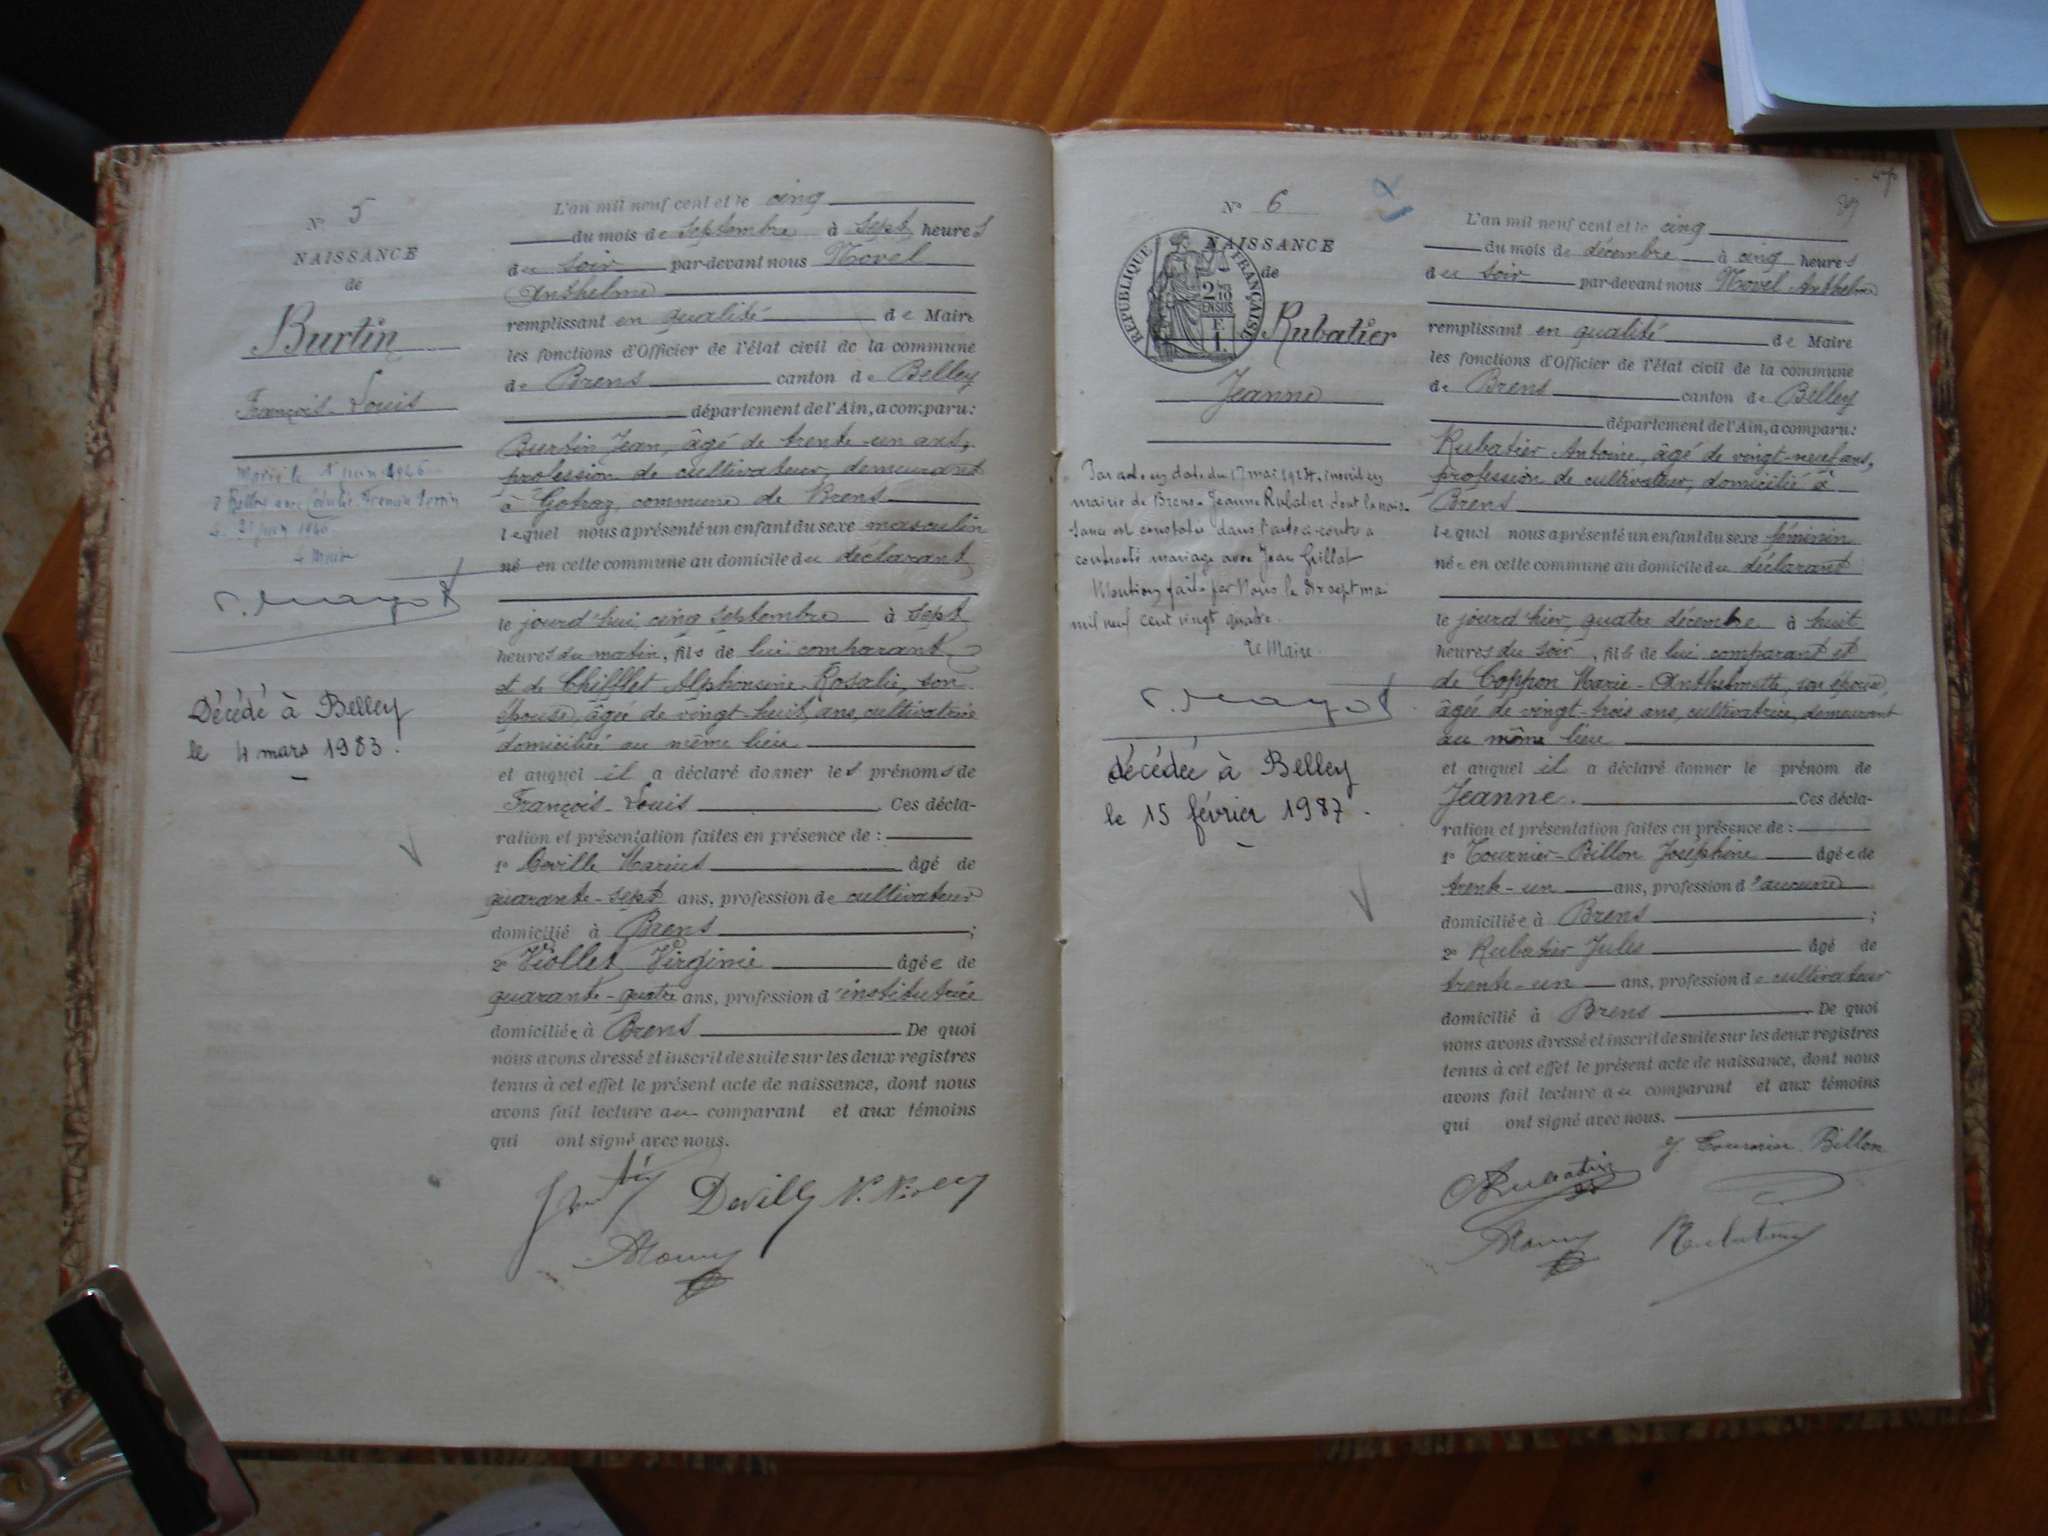 N° 5
NAISSANCE
de
Burtin
François-Louis
Marié le 1946
à Belley avec
le Maire
Décédé à Belley
le 4 mars 1983.
L'an mil neuf cent et le cinq
du mois de septembre à sept heures
du soir par-devant nous Novel
Anthelme
remplissant en qualité de Maire
les fonctions d'Officier de l'état civil de la commune
de Brens canton de Belley
département de l'Ain, a comparu:
Burtin Jean, âgé de trente-un ans,
profession de cultivateur, demeurant
à Gohaz, commune de Brens
lequel nous a présenté un enfant du sexe masculin
né en cette commune au domicile du déclarant
le jourd'hui cinq septembre à sept
heures du matin, fils de lui comparant
et de Chifflet Alphonsine-Rosalie, son
épouse, âgée de vingt-huit ans, cultivatrice
domiciliée au même lieu
et auquel il a déclaré donner les prénoms de
François-Louis Ces décla-
ration et présentation faites en présence de :
1° Deville Marius âgé de
quarante-sept ans, profession de cultivateur
domicilié à Brens ;
2° Viollet Virginie âgée de
quarante-quatre ans, profession d'institutrice
domiciliée à Brens De quoi
nous avons dressé et inscrit de suite sur les deux registres
tenus à cet effet le présent acte de naissance, dont nous
avons fait lecture au comparant et aux témoins
qui ont signé avec nous.
Deville
N° 6
NAISSANCE
de
RÉPUBLIQUE FRANÇAISE
2/10
EN SUS
F.
1.
Rubatier
Jeanne
Par acte en date du 17 mai 1924, inscrit en
mairie de Brens, Jeanne Rubatier dont la nais-
sance est constatée dans l'acte ci-contre a
contracté mariage avec Jean Guillot
Mention faite par Nous le dix sept mai
mil neuf cent vingt quatre.
Le Maire.
décédée à Belley
le 15 février 1987.
L'an mil neuf cent et le cinq
du mois de décembre à cinq heures
du soir par-devant nous Novel Anthelme
remplissant en qualité de Maire
les fonctions d'Officier de l'état civil de la commune
de Brens canton de Belley
département de l'Ain, a comparu:
Rubatier Antoine, âgé de vingt-neuf ans,
profession de cultivateur, domicilié à
Brens
lequel nous a présenté un enfant du sexe féminin
née en cette commune au domicile du déclarant
le jourd'hier, quatre décembre à huit
heures du soir, fille de lui comparant et
de Coppon Marie-Anthelmette, son épouse,
âgée de vingt-trois ans, cultivatrice, demeurant
au même lieu
et auquel il a déclaré donner le prénom de
Jeanne. Ces décla-
ration et présentation faites en présence de :
1° Tournier-Billon Joséphine âgée de
trente-un ans, profession d'aucune
domiciliée à Brens ;
2° Rubatier Jules âgé de
trente-un ans, profession de cultivateur
domicilié à Brens De quoi
nous avons dressé et inscrit de suite sur les deux registres
tenus à cet effet le présent acte de naissance, dont nous
avons fait lecture au comparant et aux témoins
qui ont signé avec nous.
J. Tournier Billon
Rubatier